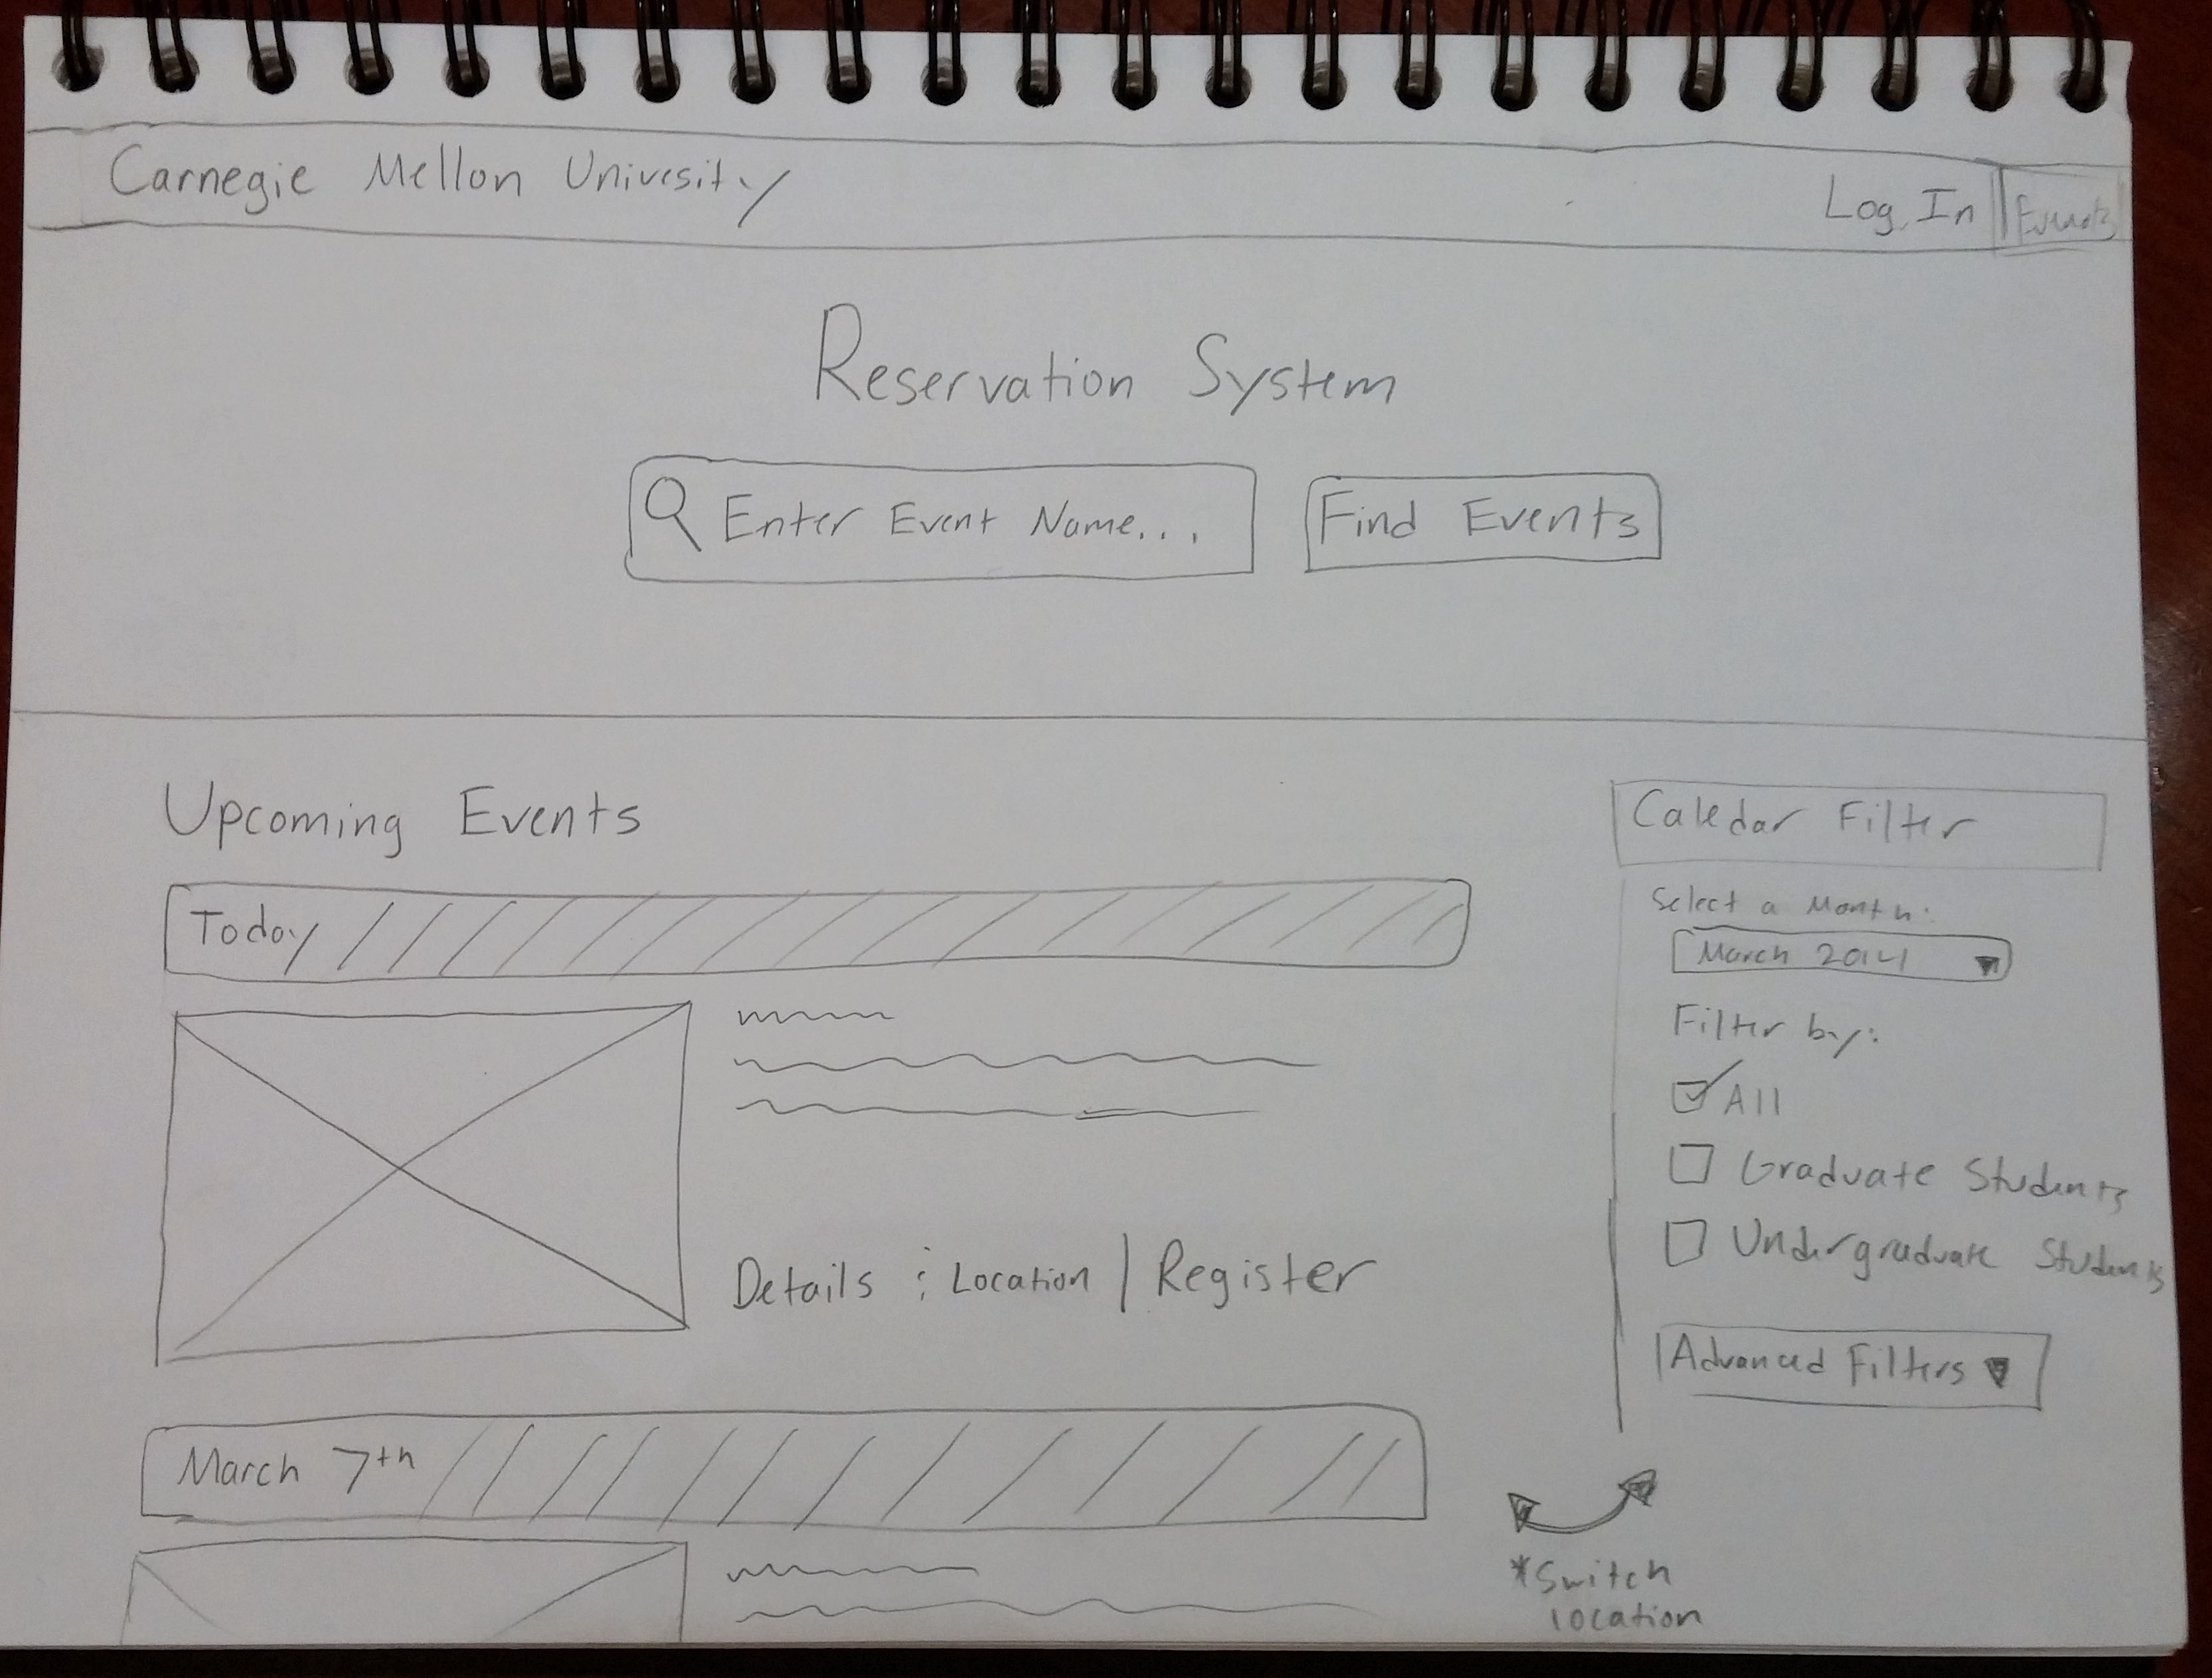 Carnegie Mellon Univesity
Log In
Events
Reservation System
Enter Event Name...
Find Events
Upcoming Events
Today
Details : Location | Register
March 7th
Caledar Filter
Select a Month:
March 2014
Filter by:
All
Graduate Students
Undergraduate Students
Advanced Filters
*Switch
location